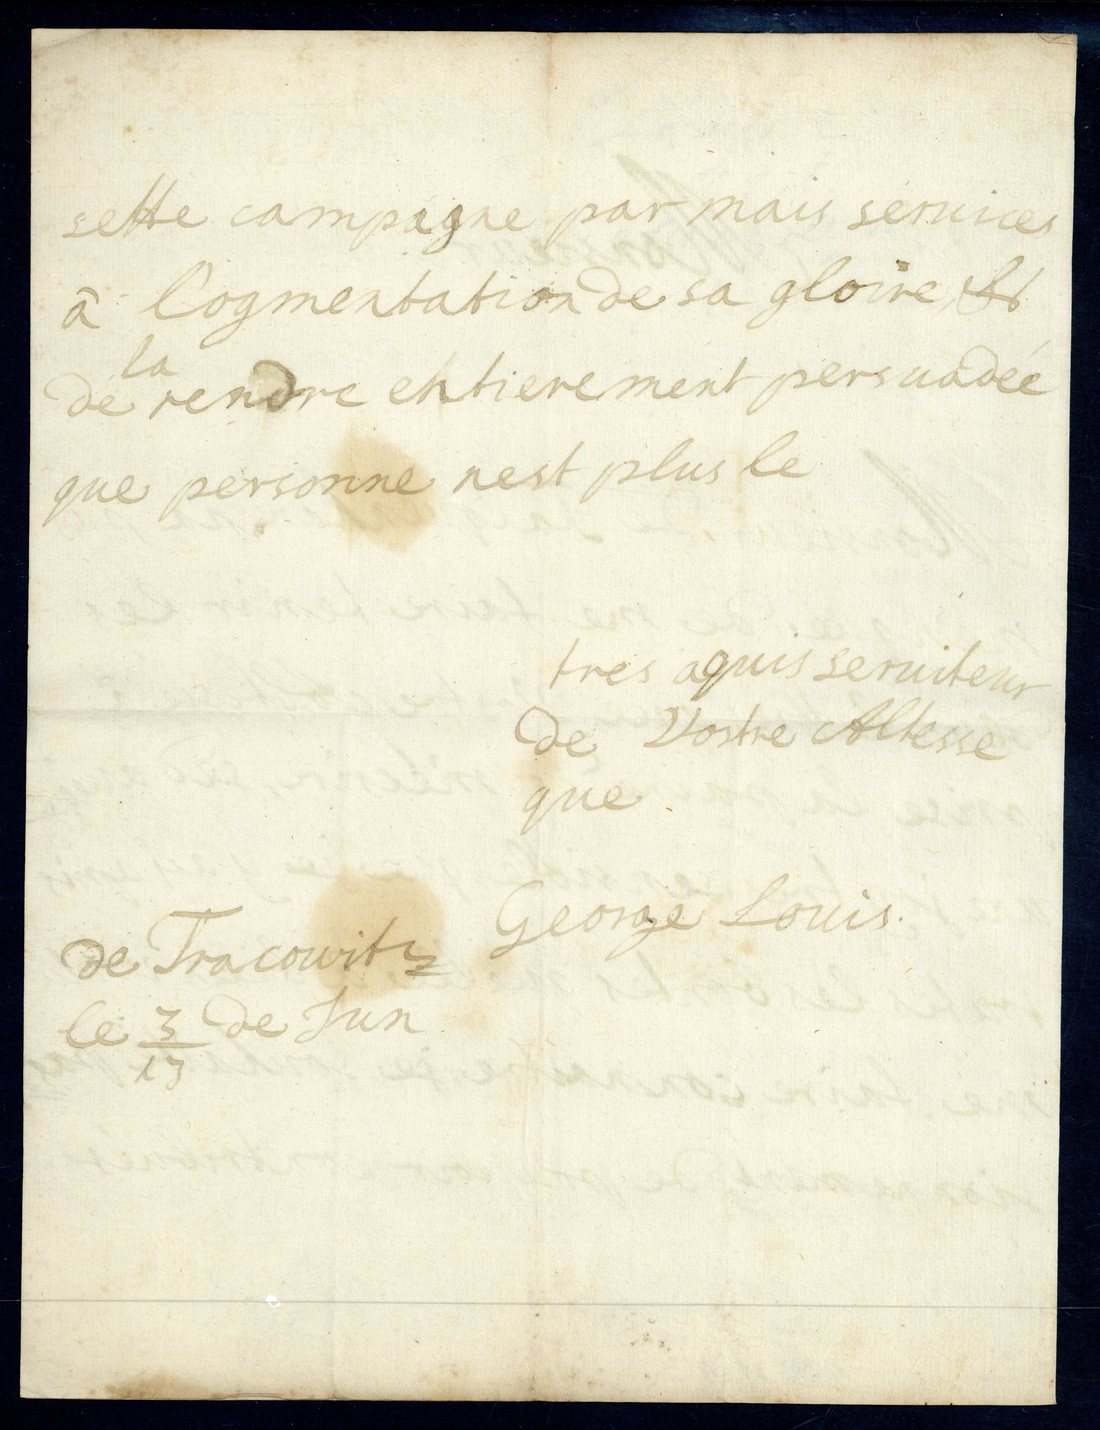 sette campagne par mais seruices
â l'ogmentation de sa gloire, et
de la rendre entierement persuadée
que personne nest plus le
tres aquis seruiteur
de Vostre Altesse
que
George Louis.
de Tracowitz
le 3/13 de Jun